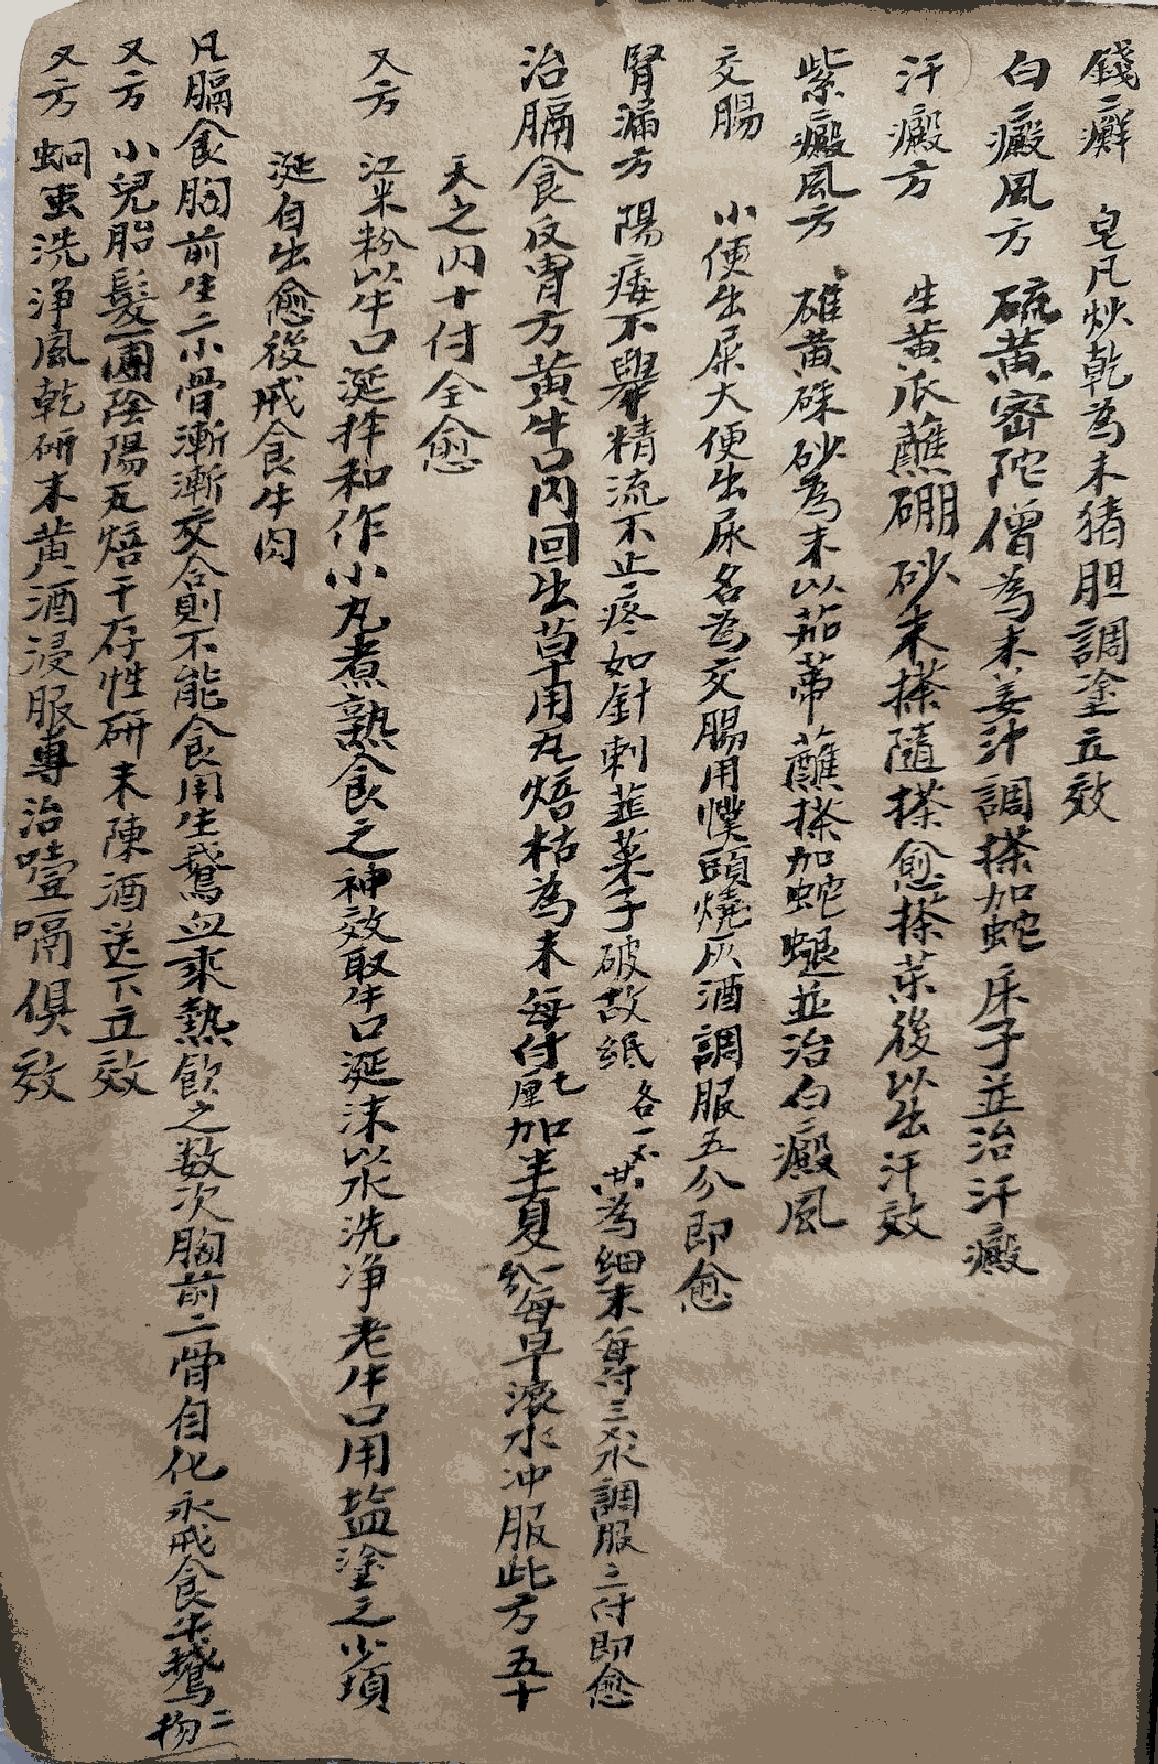 錢癬 皂凡炒乾為末猪胆調塗立效
白癜風方 硫黄密陀僧為末姜汁調搽加蛇床子並治汗癜
汗癜方 生黄瓜蘸硼砂末搽隨搽愈搽茶後以出汗效
紫癜風方 雄黄硃砂為末以茄蒂蘸搽加蛇蜕並治白癜風
交腸 小便出屎大便出尿名為交腸用幞頭燒灰酒調服五分即愈
腎漏方 陽痿不舉精流不止疼如針刺韮菜子破故紙各一共為細末每付三水調服三付即愈
治膈食反胃方黄牛口内回出草用瓦焙枯為末每付七厘加半夏一分每早滾水冲服此方五十
天之内十付全愈
又方 江米粉以牛口涎拌和作小丸煮熟食之神效取牛口涎沫以水洗净老牛口用盐塗之少項
涎自出愈後戒食牛肉
凡膈食胸前生二小骨漸漸交合則不能食用生鵞血乘熱飲之数次胸前二骨自化永戒食牛鵞二物
又方 小兒胎髮一團陰陽瓦焙干存性研末陳酒送下立效
又方 蛔虫洗净風乾研末黄酒浸服專治噎嗝俱效